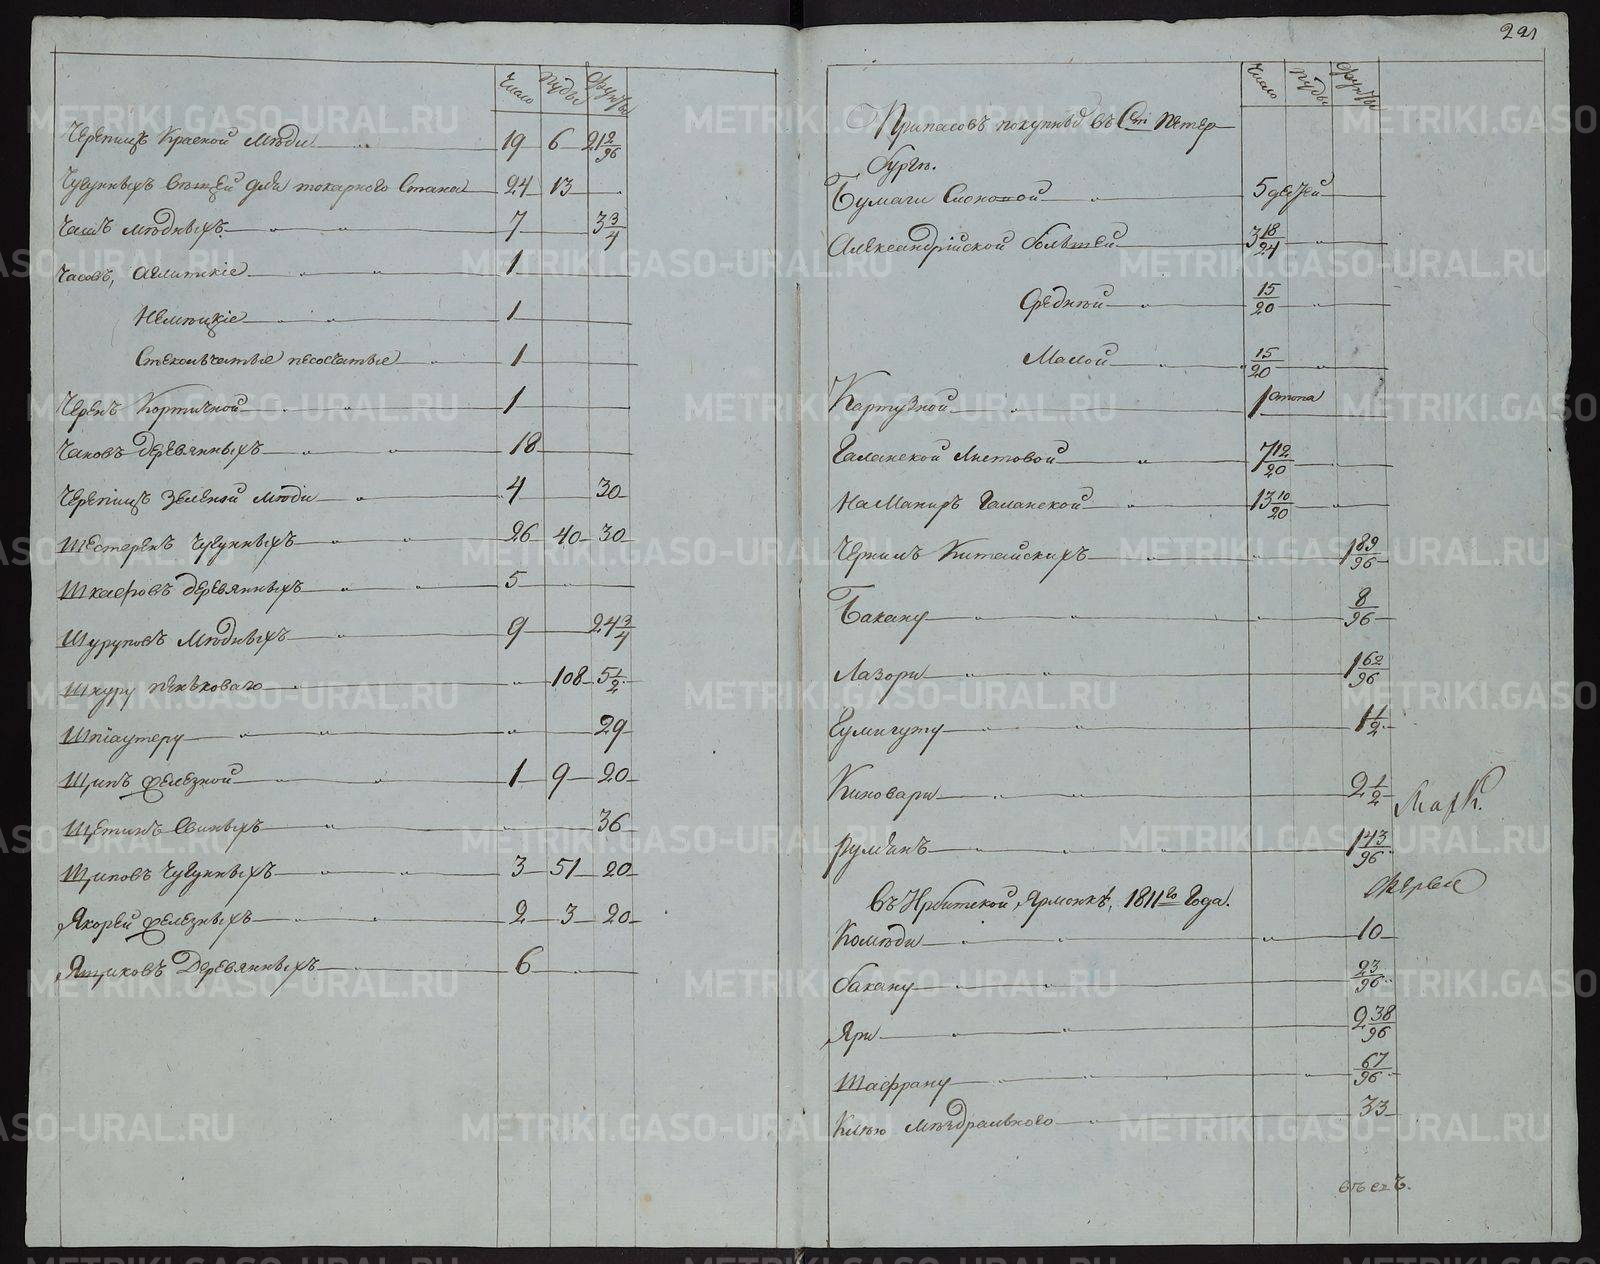 Число Пуды Фунты
Черепицъ Красной Мѣди 19 6 21 2/96
Чугунныхъ вѣщей для токарного Стана 24 13
Чашъ мѣдныхъ 7 3 3/4
Часовъ, Аглитскіе 1
Немецкіе 1
Стекольчатые песосчатые 1
Черенъ Кортичной 1
Чановъ деревянныхъ 18
Черепицъ Зеленой мѣди 4 30
Шестеренъ Чугунныхъ 26 40 30
Шкафовъ деревянныхъ 5
Шуруповъ Мѣдныхъ 9 24 3/4
Шнуру пеньковаго 108 5 1/2
Шпіаутеру 29
Щипъ железной 1 9 20
Щетинъ Свиныхъ 36
Щиповъ Чугунныхъ 3 51 20
Якорей железныхъ 2 3 20
Ящиковъ Деревянныхъ 6
221
Число Пуды Фунты
Припасовъ покупныхъ въ Санктъ Петер
Бургѣ.
Бумаги Слоновой 5 детей
Александрійской большей 3 18/24
Средней 15/20
Малой 15/20
Картузной 1 стопа
Галанской Листовой 7 12/20
На Маниръ Галанской 13 10/20
Чернилъ Китайскихъ 1 89/96
Бакану 8/96
Лазори 1 62/96
Гумигуту 1 1/2
Киновари 2 1/2
Румянъ 1 43/96
Въ Ирбитской Ярмонкѣ, 1811го Года.
Комѣди 10
бакану 23/96
Яри 2 38/96
Шафрану 67/96
Клѣю мѣздрильного 33
METRIKI.GASO-URAL.RU